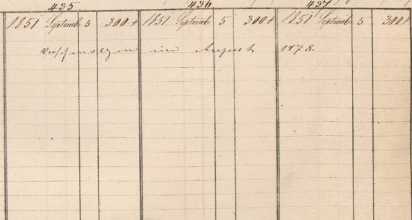 435 436 437
1851 Septemb 5 300 1851 Septemb 5 300 1851 Septemb 5 300
im August 1878.